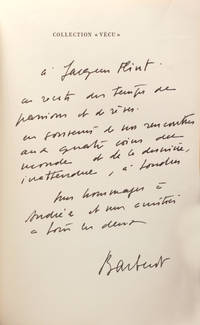 COLLECTION « VÉCU »
à Jacques Flint.
ce récit des temps de
passions et de rêves.
en souvenir de nos rencontres
aux quatre coins du
monde et de la dernière,
inattendue, à Londres
mes hommages à
Andrée et mes amitiés
à tous les deux